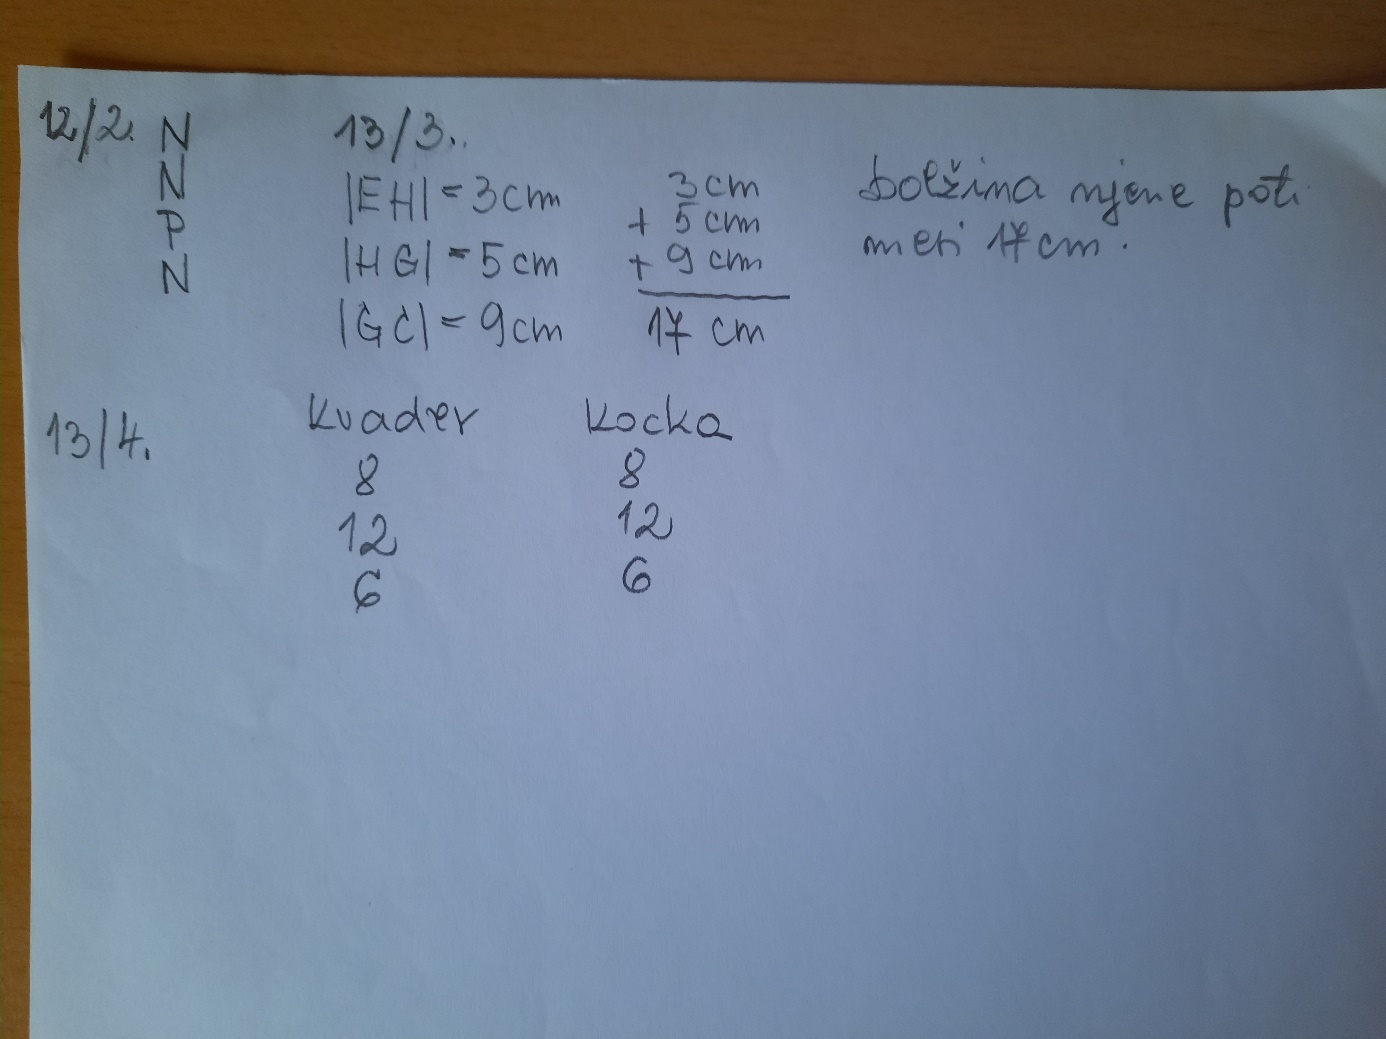 12/2. N
N
P
N
13/3..
|EH| = 3cm
|HG| = 5cm
|GC| = 9cm
3cm
+ 5cm
+ 9cm
17 cm
Dolžina njene poti
meri 17cm.
13/4.
Kvader Kocka
8 8
12 12
6 6